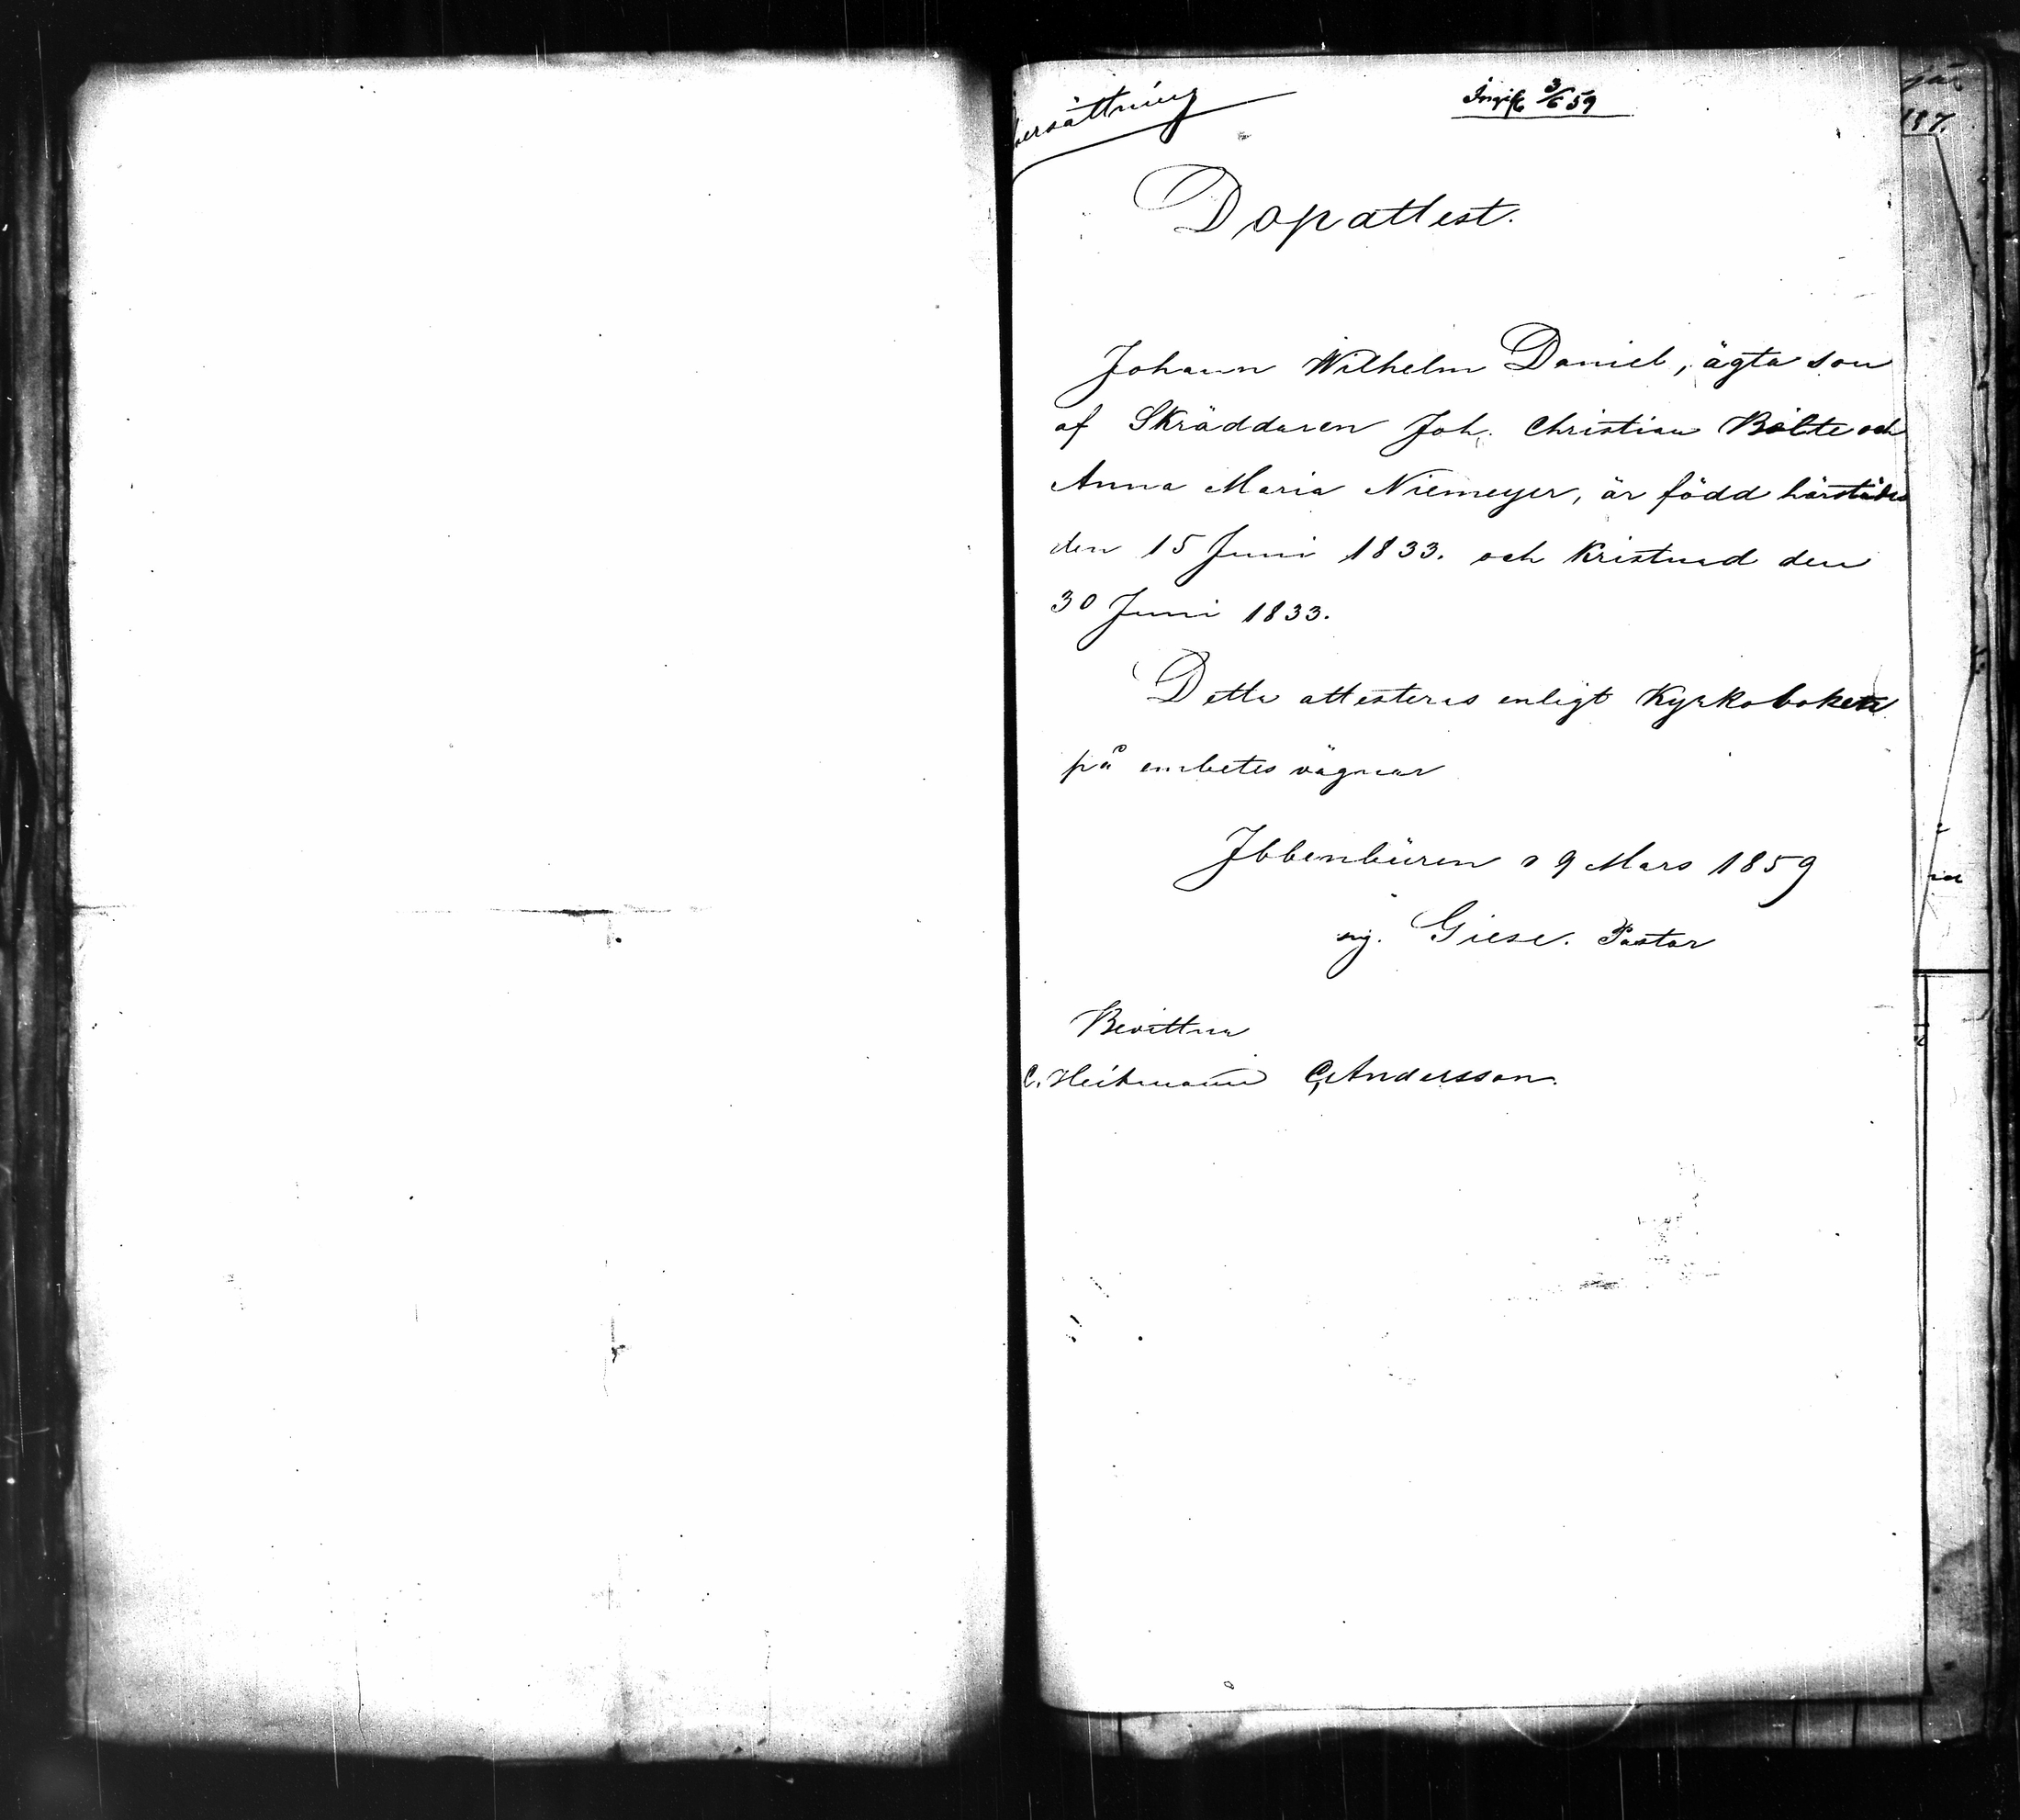 Öfversättning
Ingik 3/6 59
Dopattest.
Johann Wilhelm Daniel, ägta son
af Skräddaren Joh. Christian Bölte och
Anna Maria Niemeyer, är född härstädes
den 15 Juni 1833. och Kristnad den
30 Juni 1833.
Detta attesteras enligt Kyrkoboken
på embetes vägnar
Ibbenbüren d 9 Mars 1859
sig. Giese. Pastor
Bevittna
C. Heitmann C Andersson.